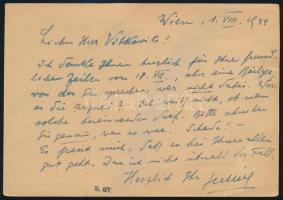 Wien, 1. VIII. 1944
Lieber Herr Vitkovits!
Ich danke Ihnen herzlich für Ihre freund-
lichen Zeilen vom 18. VII., aber eine Beilage,
von der Sie sprechen, war nicht dabei. War
es die 2 Ich nicht, ob man
solche hereinsenden darf. Bitte schreiben
Sie genau, was es war. Schade! –
Es freut mich, daß es bei Ihnen allen
gut geht. Das ist nicht überall der Fall.
Herzlich Ihr
D. GY.